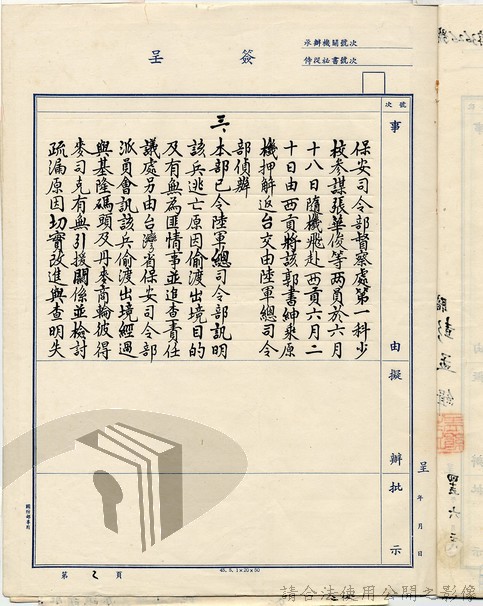 承辦機關號次
侍從祕書號次
簽呈
號次
事由擬辦批示
保安司令部督察處第一科少
校參謀張華俊等两員於六月
十八日隨機飛赴西貢六月二
十日由西貢將該郭書紳乘原
機押解返台交由陸軍總司令
部偵辦
三、本部已令陸軍總司令部訊明
該兵逃亡原因偷渡出境目的
及有無為匪情事並追查責任
議處另由台灣省保安司令部
派員會訊該兵偷渡出境經過
與基隆碼頭及丹麥商輪彼得
麥司克有無引援關係並檢討
疏漏原因切實改進與查明失
呈 年 月 日
第 2 頁
45. 5. 1×20×50
請合法使用公開之影像